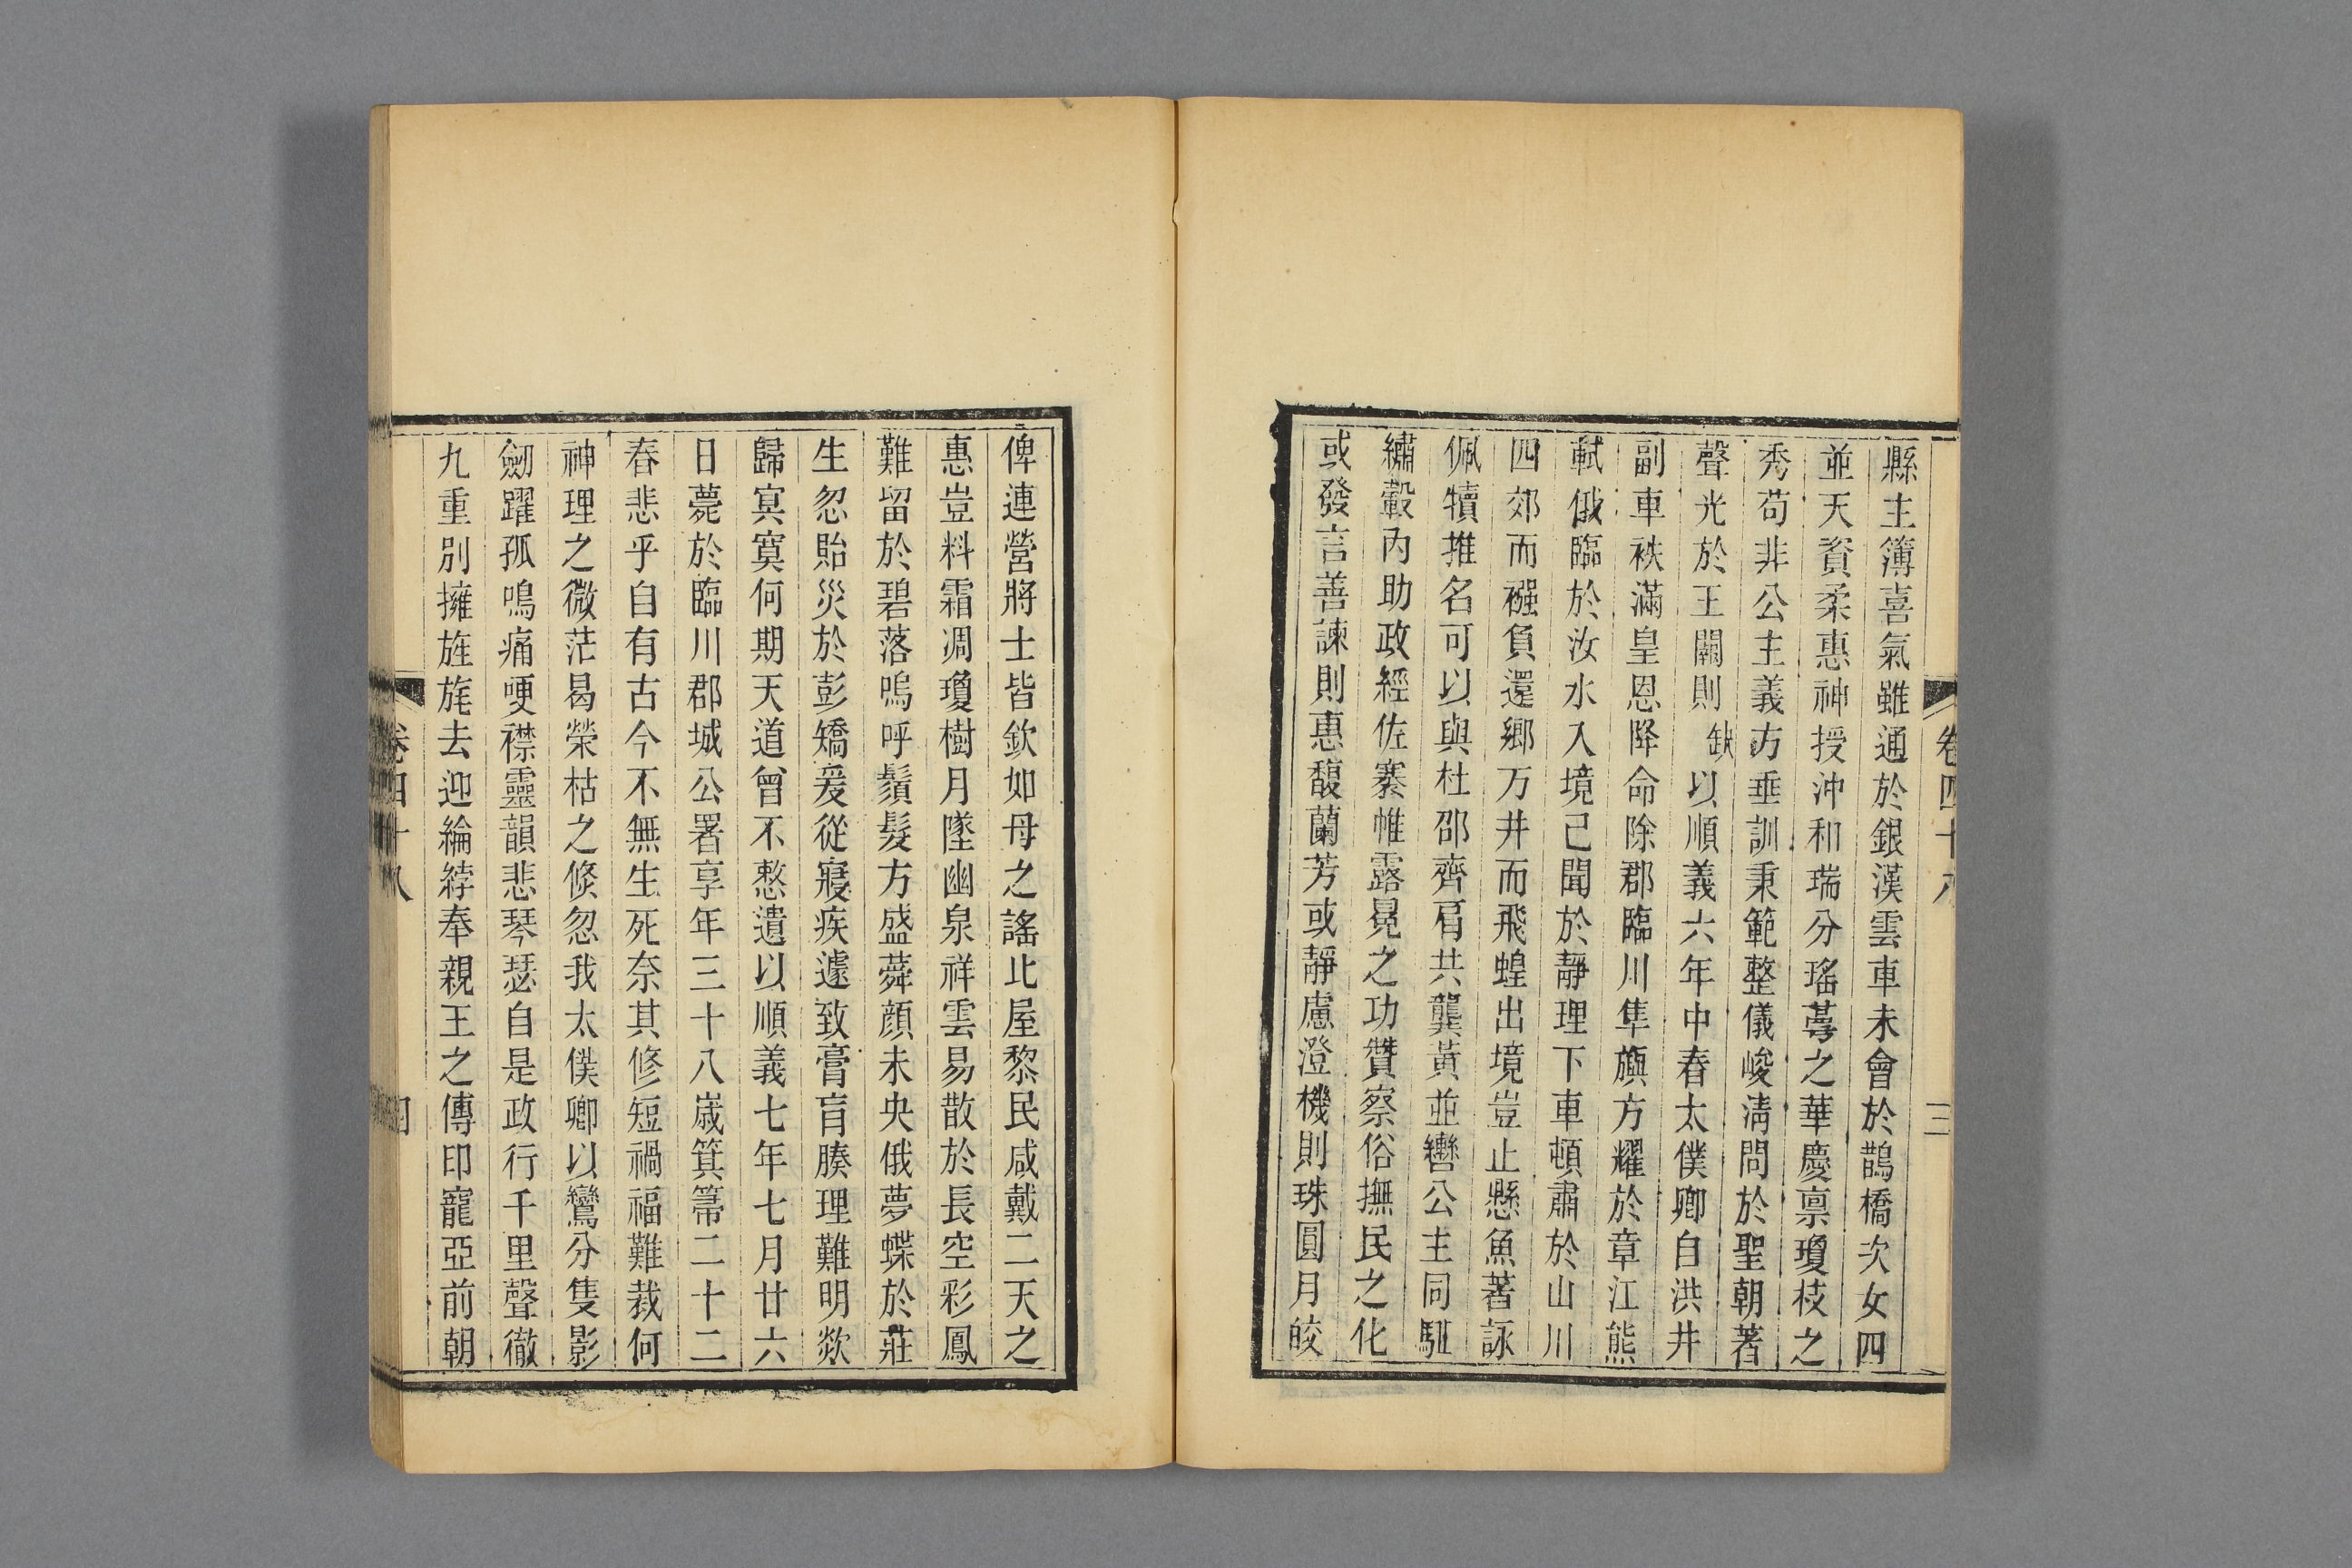 卷四十八
三
縣主簿喜氣雖通於銀漢雲車未會於鵲橋次女四
並天資柔惠神授沖和瑞分瑤萼之華慶禀瓊枝之
秀苟非公主義方垂訓秉範整儀峻淸問於聖朝著
聲光於王闈則缺以順義六年中春太僕卿自洪井
副車袟滿皇恩降命除郡臨川隼旟方耀於章江熊
軾俄臨於汝水入境已聞於靜理下車頓肅於山川
四郊而襁負還鄉万井而飛蝗出境豈止懸魚著詠
佩犢推名可以與杜邵齊肩共龔黃並轡公主同駈
繡轂內助政經佐褰帷露冕之功贊察俗撫民之化
或發言善諫則惠馥蘭芳或靜慮澄機則珠圓月皎
俾連營將士皆欽如母之謠比屋黎民咸戴二天之
惠豈料霜凋瓊樹月墜幽泉祥雲易散於長空彩鳳
難留於碧落嗚呼鬚髮方盛蕣顔未央俄夢蝶於莊
生忽貽災於彭矯爰從寢疾遽致膏肓腠理難明欻
歸寞寞何期天道曾不憗遺以順義七年七月廿六
日薨於臨川郡城公署享年三十八歲箕箒二十二
春悲乎自有古今不無生死奈其修短禍福難裁何
神理之微茫曷榮枯之倐忽我太僕卿以鸞分隻影
劒躍孤鳴痛哽襟靈韻悲琴瑟自是政行千里聲徹
九重別擁旌旄去迎綸綍奉親王之傳印寵亞前朝
卷四十八
四